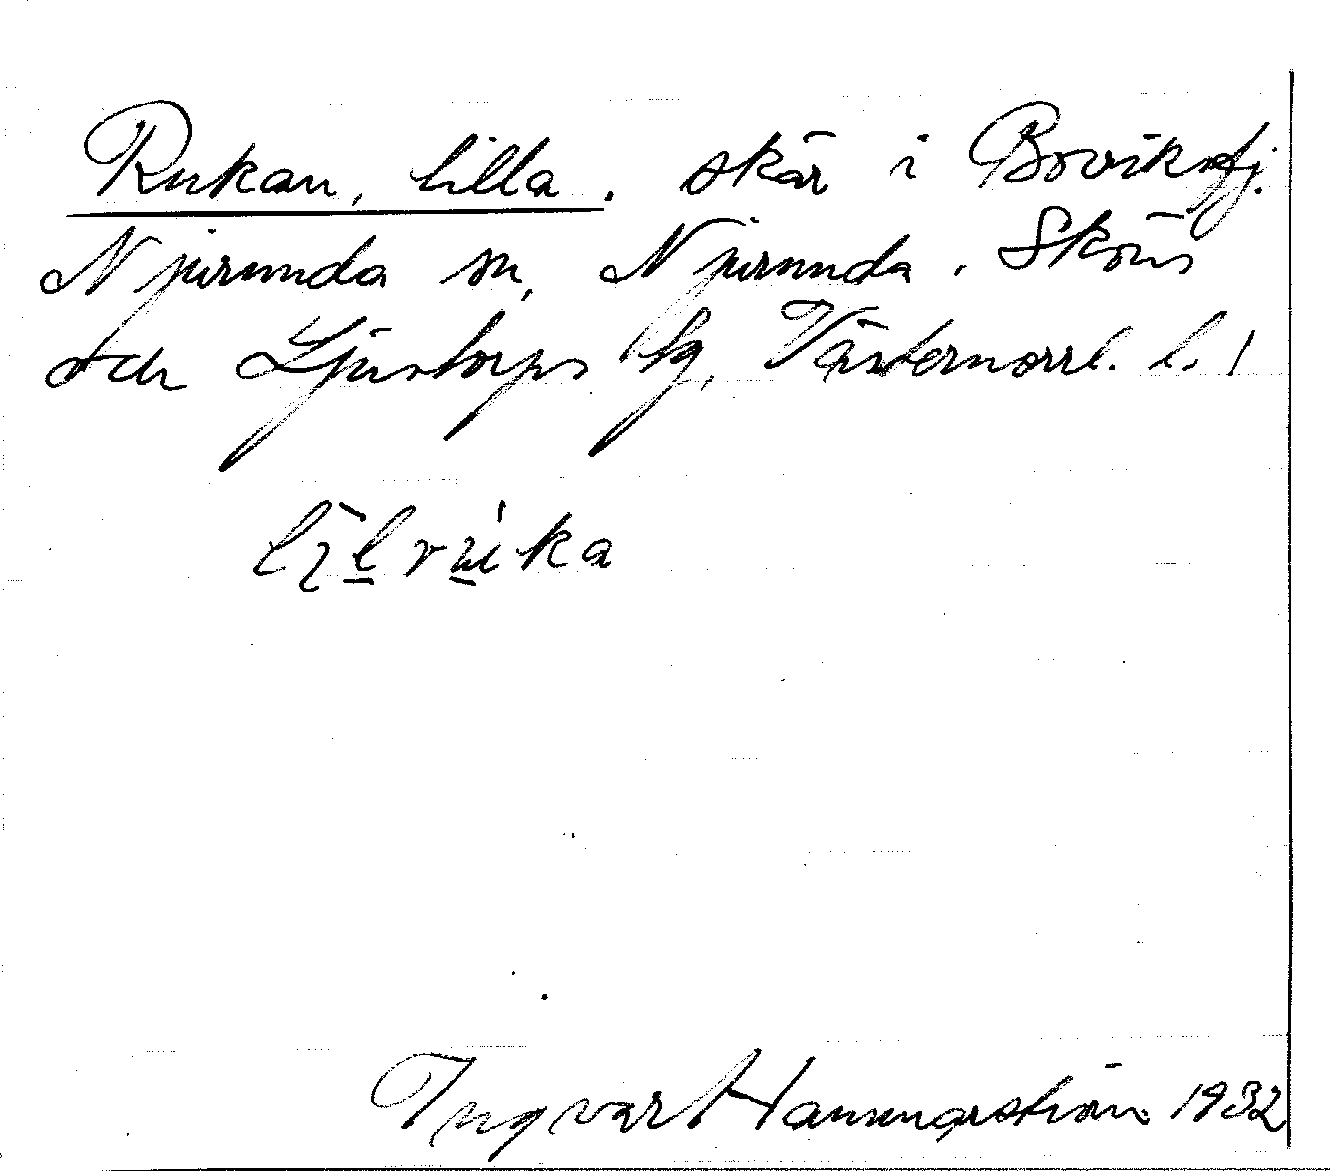 Rukan, Lilla. skär i Bovikafj.
Njurunda sn, Njurunda. Sköns
och Ljustorps tg, Västernorrl. l. 1
Ingvar Hammarström 1932